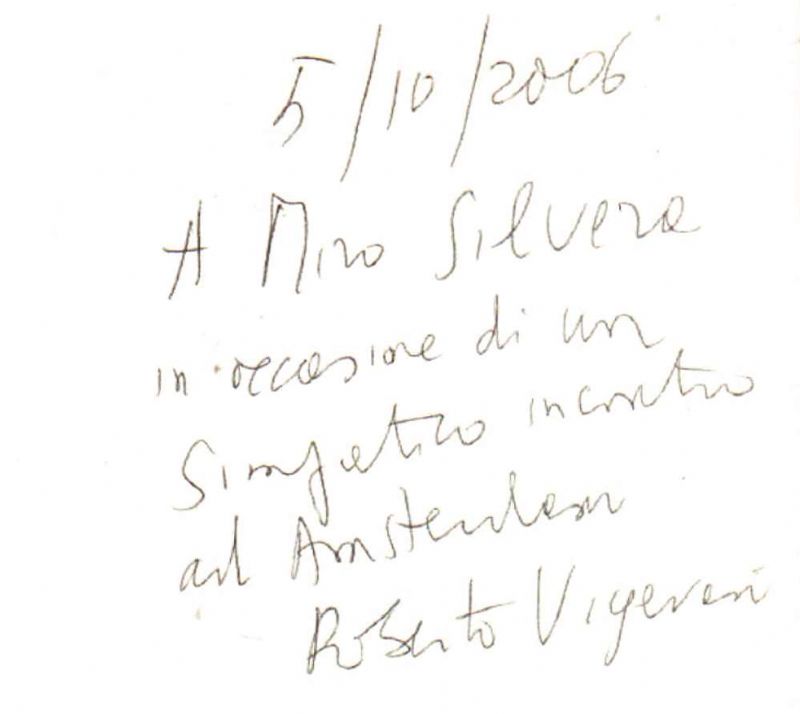 5/10/2006
A Miro Silvera
in occasione di un
simpatico incontro
ad Amsterdam
Roberto Vigevani